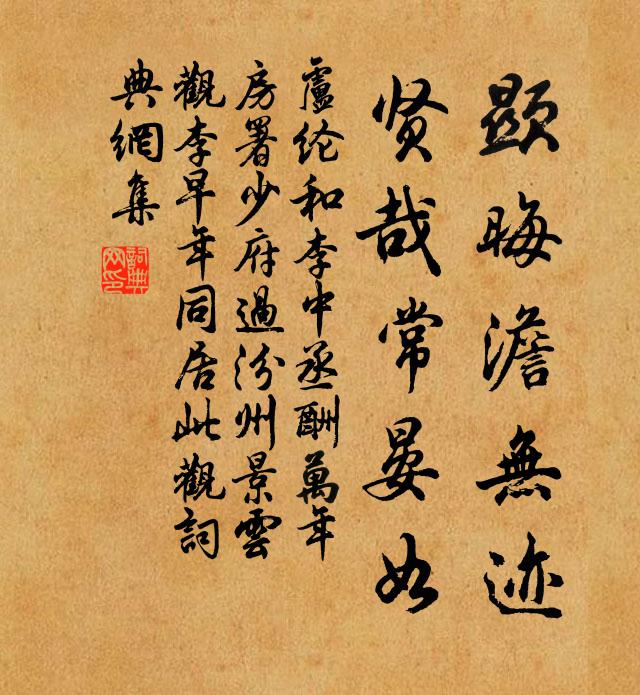 顯晦澹無迹
贤哉常晏如
盧纶和李中丞酬萬年
房署少府過汾州景雲
觀李早年同居此觀詞
典網集
詞典
网印